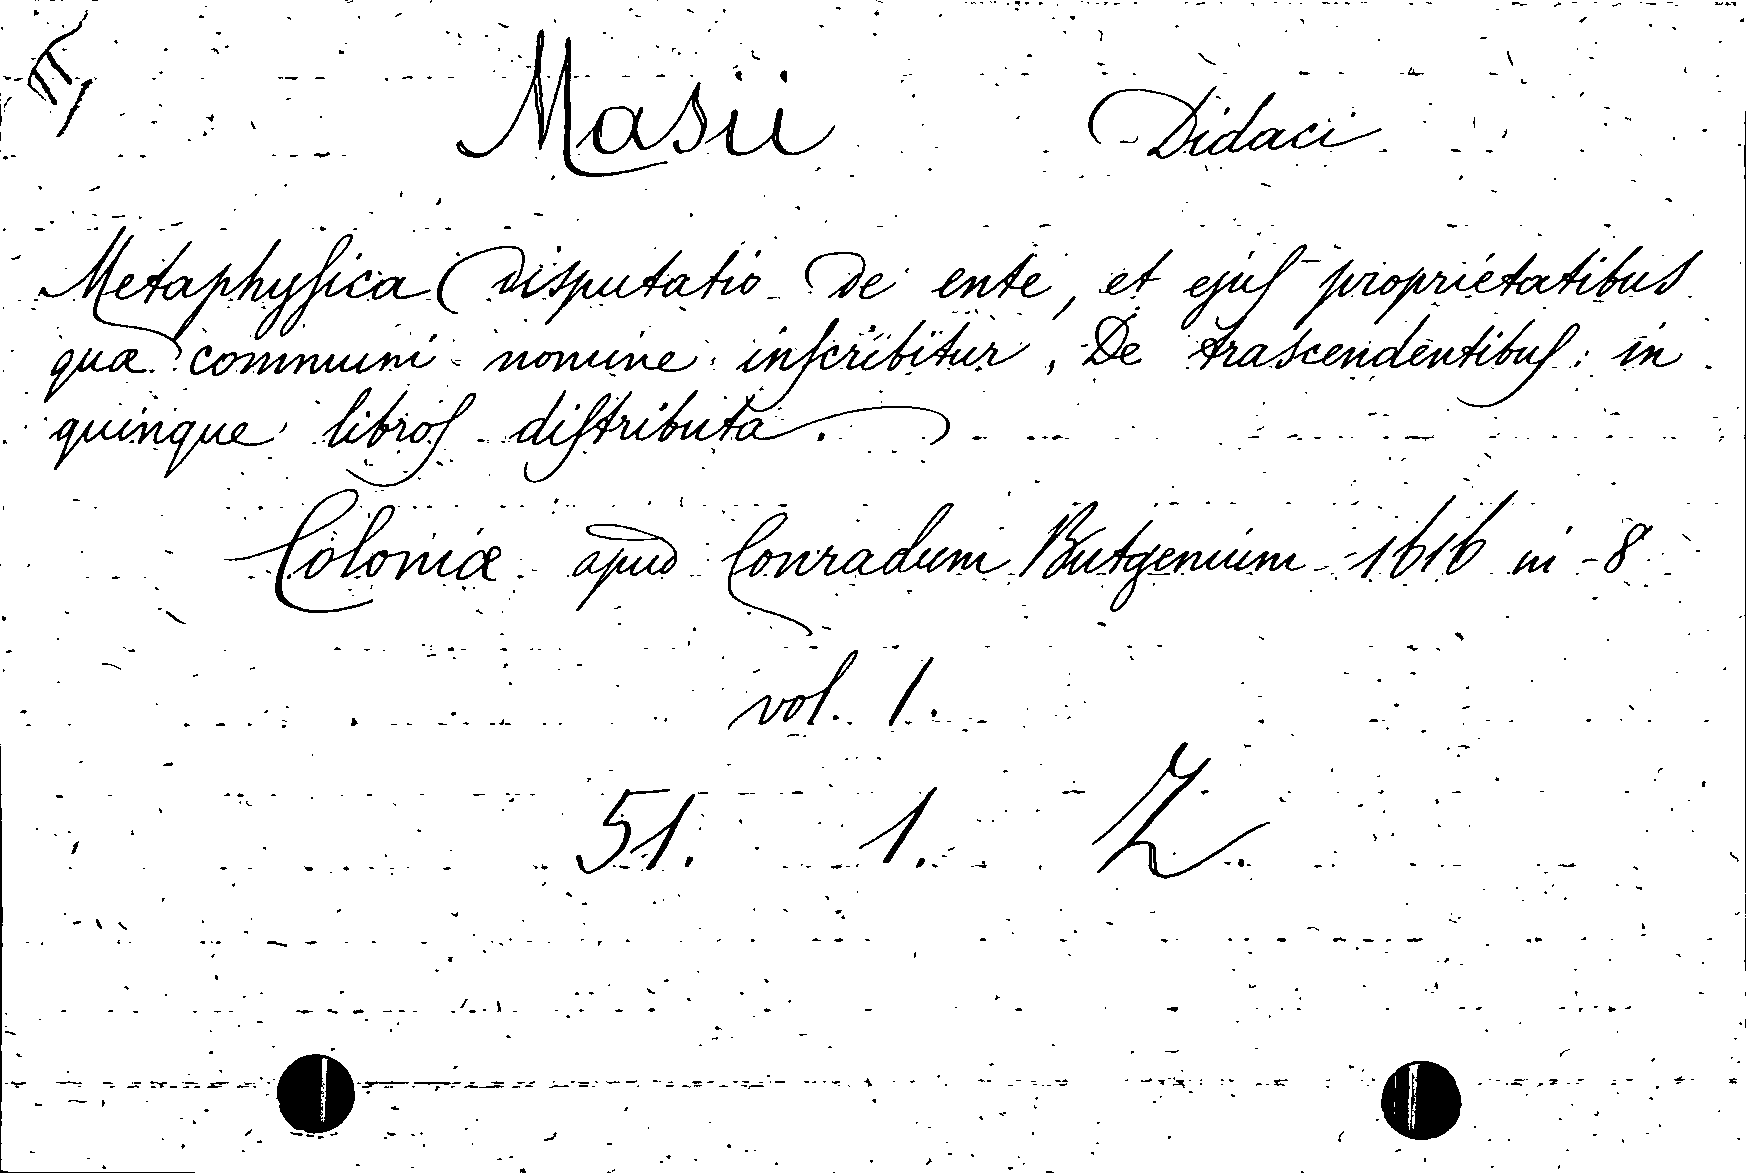 Masii Didaci
Metaphyſica Disputatio De ente, et ejuſ proprietatibus
quæ communi nomine inſcribitur, De trascendentibuſ: in
quinque libroſ diſtributa.
Coloniæ apud Conradum Butgenium 1616 in-8
vol. 1.
51. 1. Z.